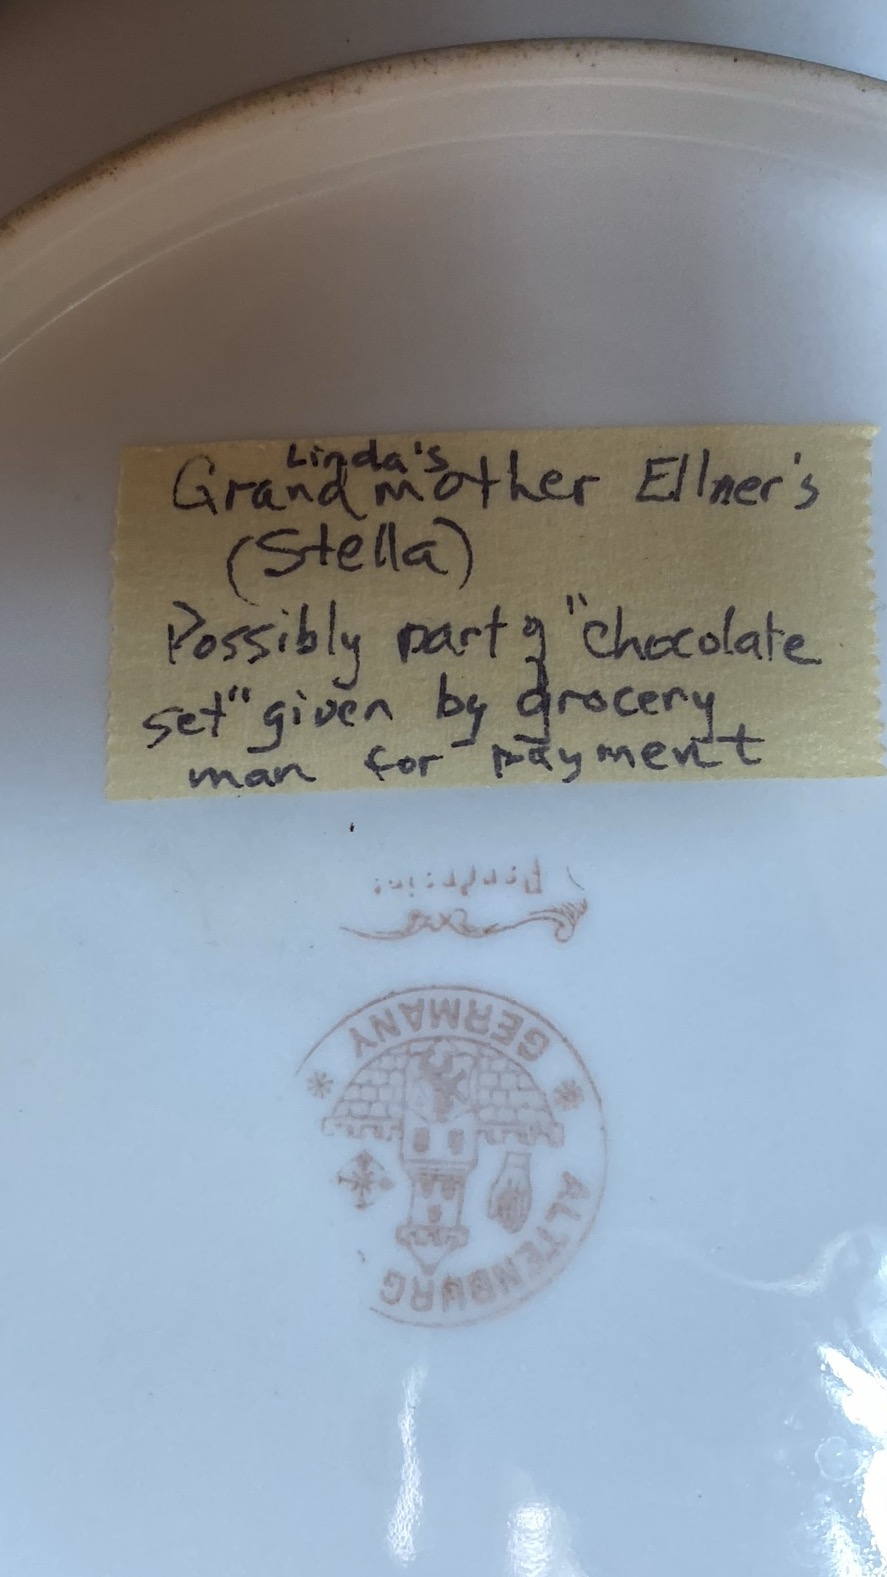 Linda's
Grandmother Ellner's
(Stella)
Possibly part of "chocolate
set" given by grocery
man for payment
GERMANY
ALTENBURG